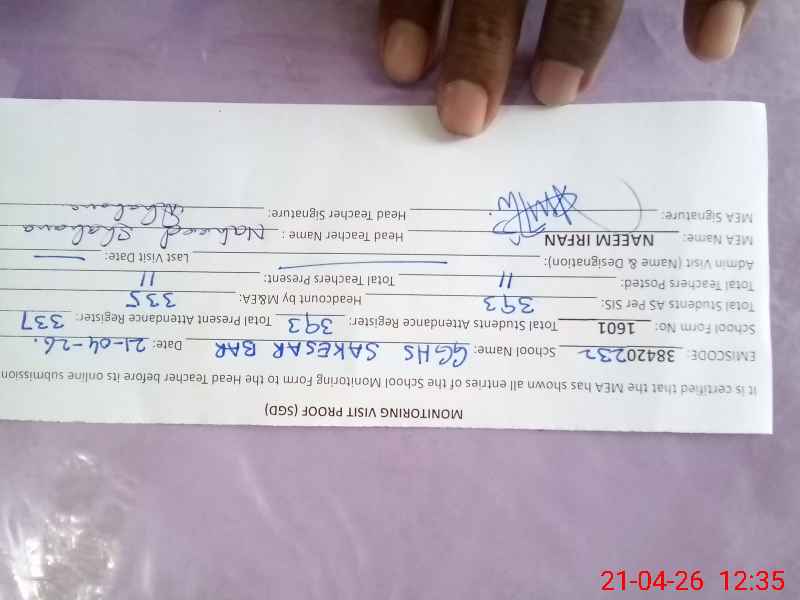 MONITORING VISIT PROOF (SGD)
It is certified that the MEA has shown all entries of the School Monitoring Form to the Head Teacher before its online submission
EMISCODE: 38420232 School Name: GGHS SAKESAR BAR Date: 21-04-26.
School Form No: 1601 Total Students Attendance Register: 393 Total Attendance Present Register: 337
Total Students AS Per SIS: 393 Headcount by M&EA: 335
Total Teachers Posted: 11 Total Teachers Present: 11
Admin Visit (Name & Designation): Last Visit Date:
MEA Name: NAEEM IRFAN Head Teacher Name : Naheed Shabana
MEA Signature: Head Teacher Signature: Shabana
21-04-26 12:35